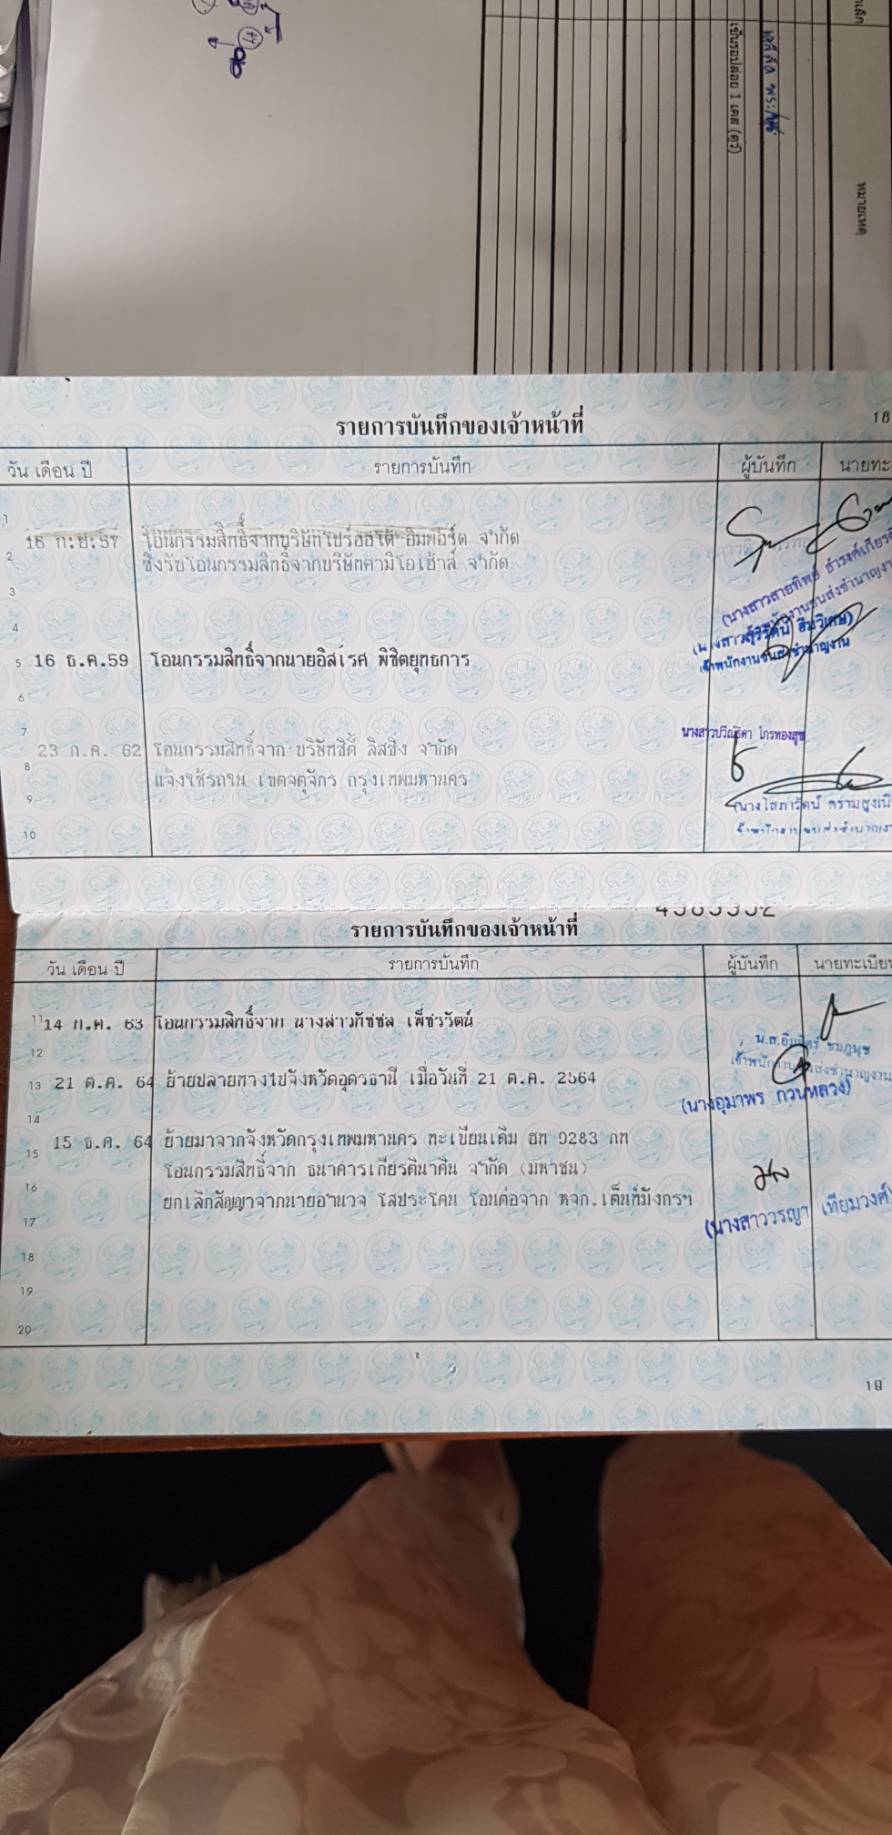 เล็ก
หมายเหตุ
เข็นรอปล่อย 1 เคส (ตู่)
รายการบันทึกของเจ้าหน้าที่
18
วัน เดือน ปี รายการบันทึก ผู้บันทึก นายทะ
1
2 16 ก.ย.57 โอนกรรมสิทธิ์จากบริษัทโปร์ออโต้ อิมพอร์ต จำกัด
ซึ่งรับโอนกรรมสิทธิ์จากบริษัทคามิโอเฮ้าส์ จำกัด
3
4
5 16 ธ.ค.59 โอนกรรมสิทธิ์จากนายอิสเรศ พิชิตยุทธการ
เจ้าพนักงานขนส่งชำนาญงาน
6
7
นางสาวปวีณธิดา ไกรทองสุข
8 23 ก.ค. 62 โอนกรรมสิทธิ์จาก บริษัทซิตี้ ลิสซิ่ง จำกัด
9 แจ้งใช้รถใน เขตจตุจักร กรุงเทพมหานคร
10
4565552
รายการบันทึกของเจ้าหน้าที่
วัน เดือน ปี รายการบันทึก ผู้บันทึก นายทะเบียน
11 14 ก.ค. 63 โอนกรรมสิทธิ์จาก นางสาวภัชชล เพ็ชรรัตน์
12
13 21 ต.ค. 64 ย้ายปลายทางไปจังหวัดอุดรธานี เมื่อวันที่ 21 ต.ค. 2564
(นางอุมาพร กวนหลวง)
14
15 15 ธ.ค. 64 ย้ายมาจากจังหวัดกรุงเทพมหานคร ทะเบียนเดิม ฮท 9283 กท
โอนกรรมสิทธิ์จาก ธนาคารเกียรตินาคิน จำกัด (มหาชน)
16
ยกเลิกสัญญาจากนายอำนวจ โสประโคน โอนต่อจาก หจก.เต็นท์มังกรฯ
17
(นางสาววรญา เทียมวงศ์)
18
19
20
19